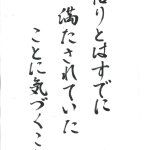 悟りとはすでに
満たされていた
ことに気づくこ